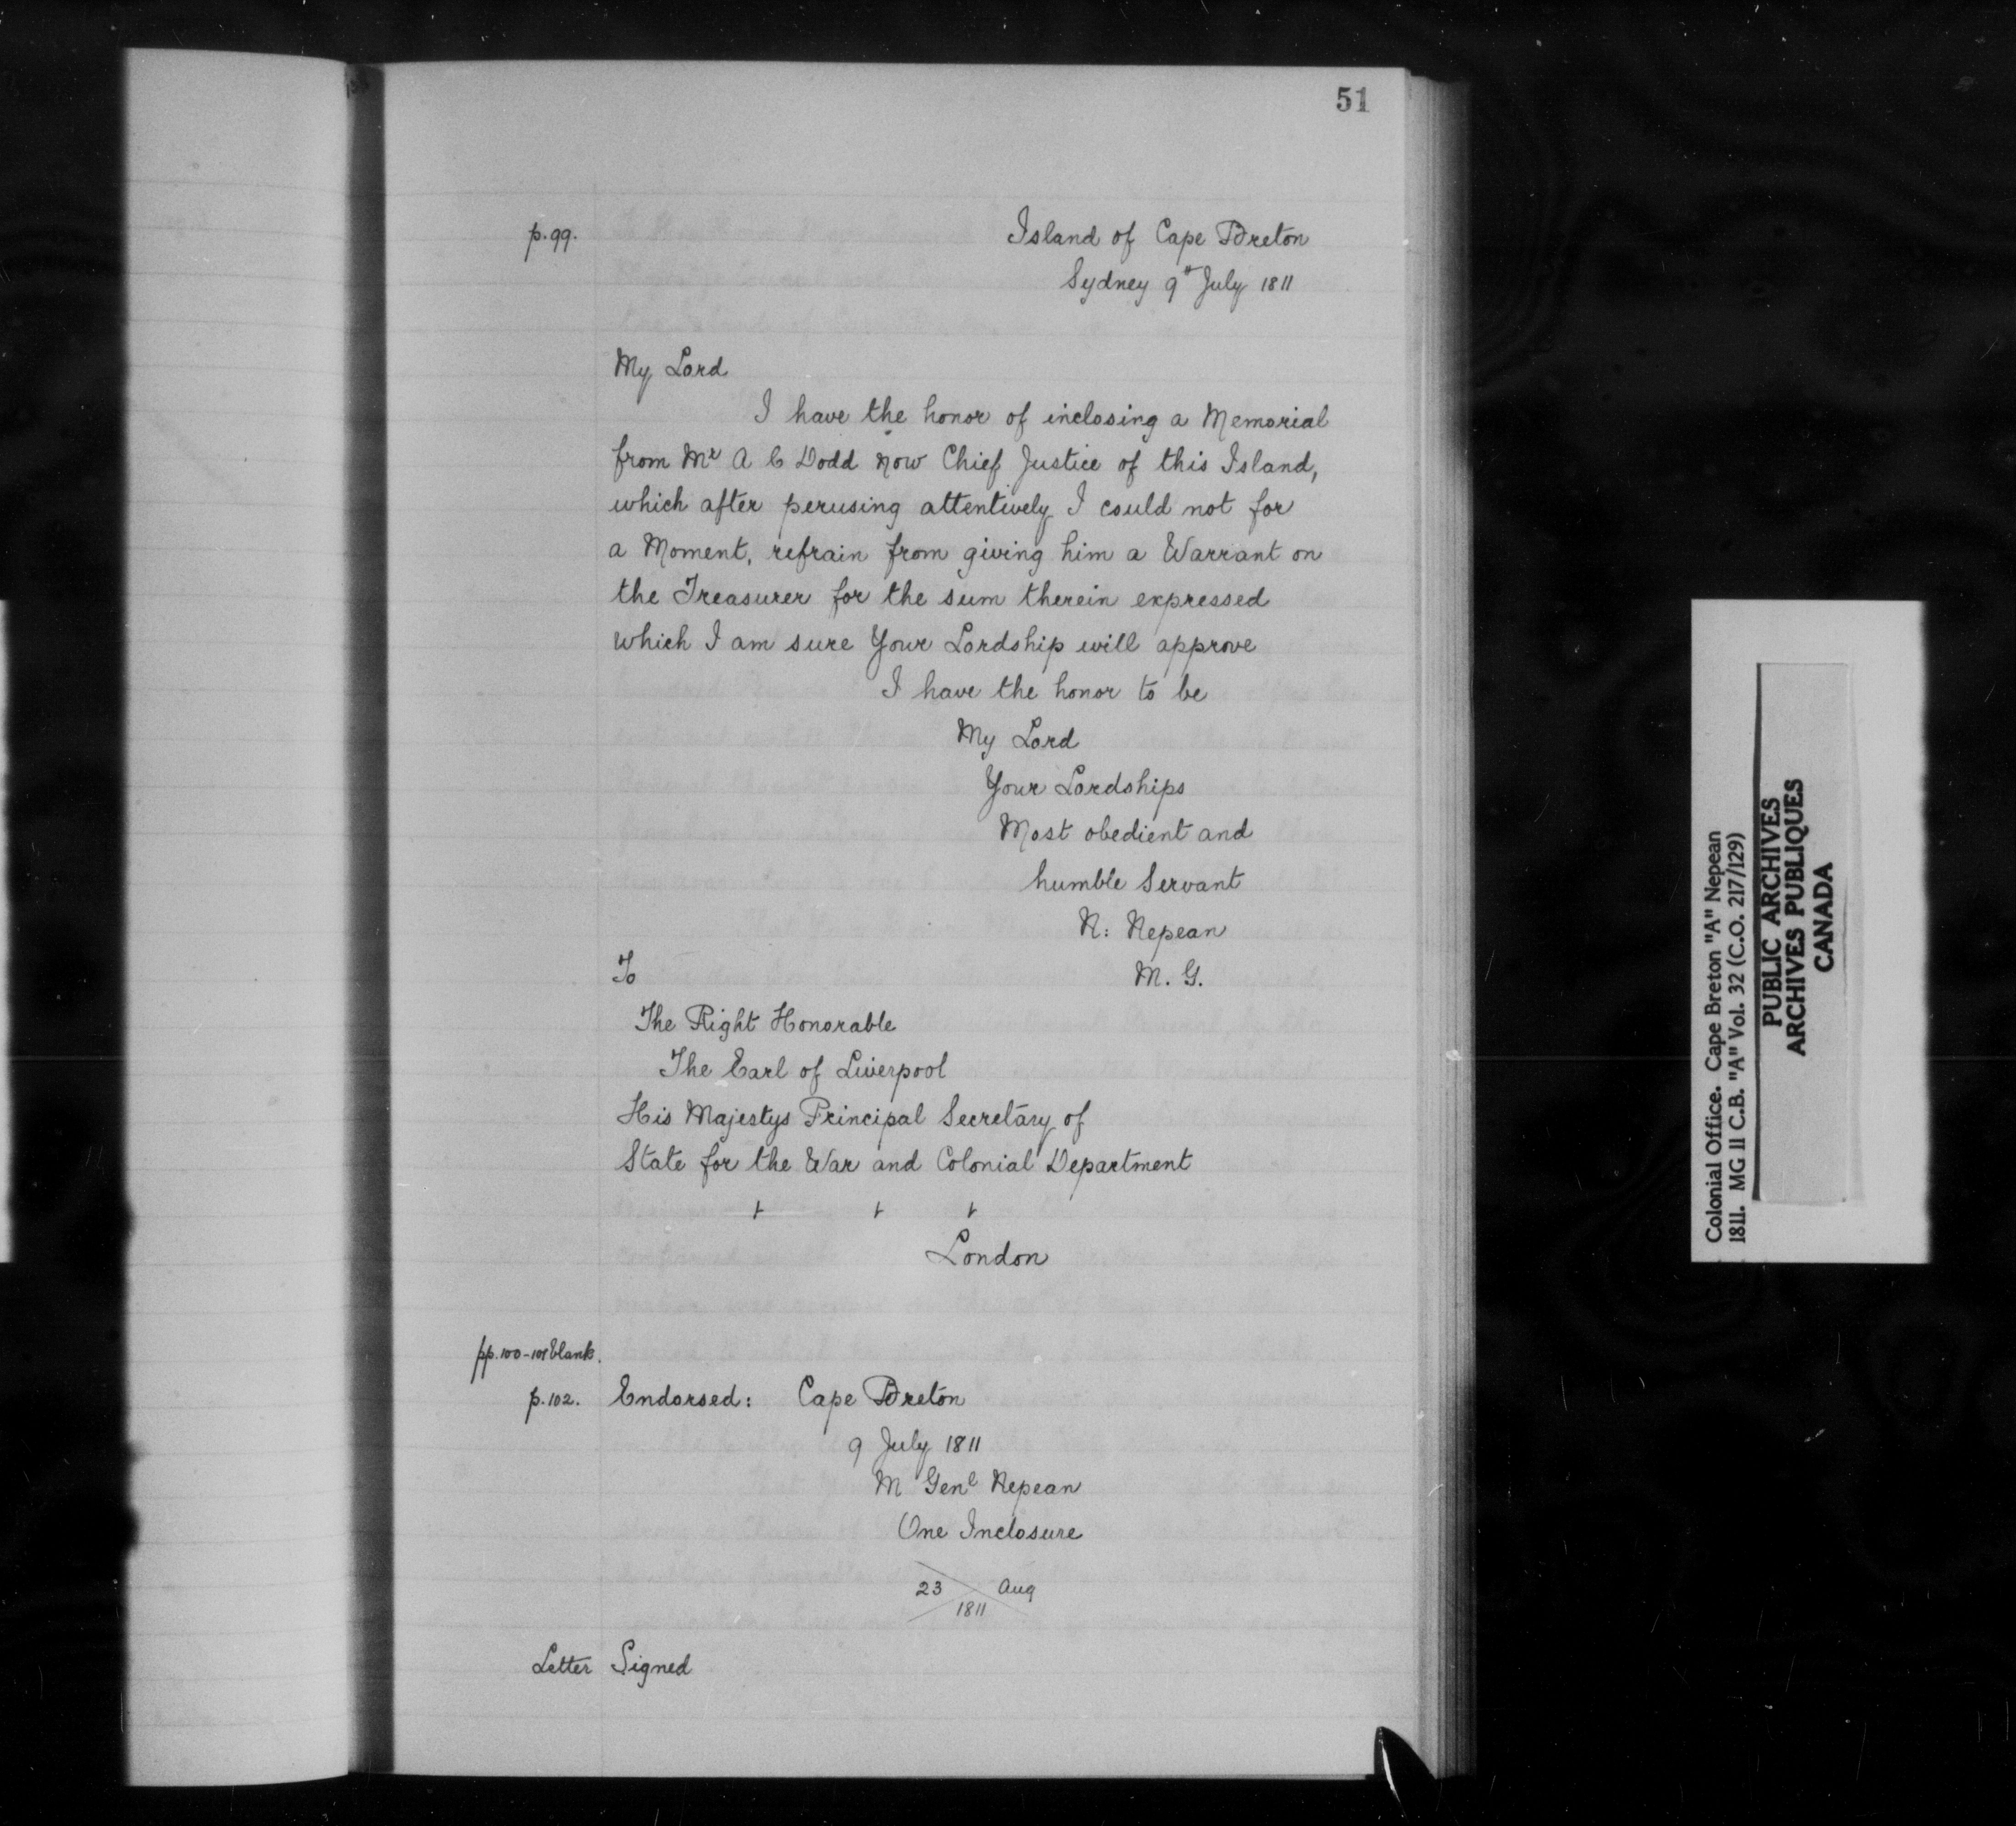 51
p. 99.
Island of Cape Breton
Sydney 9th July 1811
My Lord
I have the honor of inclosing a Memorial
from Mr A C Dodd now Chief Justice of this Island,
which after perusing attentively I could not for
a Moment, refrain from giving him a Warrant on
the Treasurer for the sum therein expressed
which I am sure Your Lordship will approve
I have the honor to be
My Lord
Your Lordships
Most obedient and
humble Servant
N: Nepean
To M. G.
The Right Honorable
The Earl of Liverpool
His Majestys Principal Secretary of
State for the War and Colonial Department
+ + +
London
pp. 100-101 blank.
p. 102. Endorsed: Cape Breton
9 July 1811
M Genl Nepean
One Inclosure
23 Aug
1811
Letter Signed
Colonial Office. Cape Breton "A" Nepean
1811. MG 11 C.B. "A" Vol. 32 (C.O. 217/129)
PUBLIC ARCHIVES
ARCHIVES PUBLIQUES
CANADA